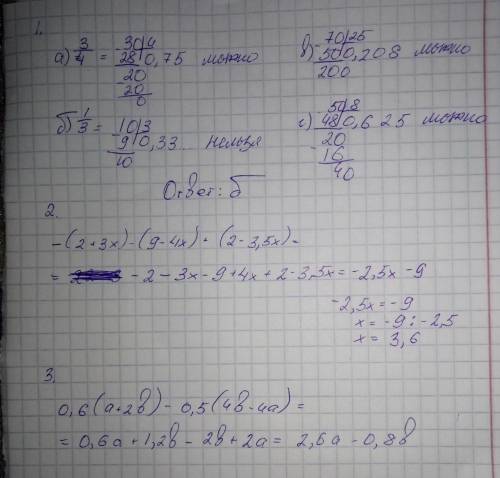 1.
а) 3/4 = 30|4
28|0,75 можно
20
20
0
б) 1/3 = 10|3
9|0,33... нельзя
10
в) 70|25
50|0,208 можно
200
г) 50|8
48|0,625 можно
20
16
40
Ответ: б
2.
-(2+3x)-(9-4x)+(2-3,5x)=
= -2-3x-9+4x+2-3,5x=-2,5x-9
-2,5x=-9
x=-9:-2,5
x=3,6
3.
0,6(a+2b)-0,5(4b-4a)=
=0,6a+1,2b-2b+2a=2,6a-0,8b